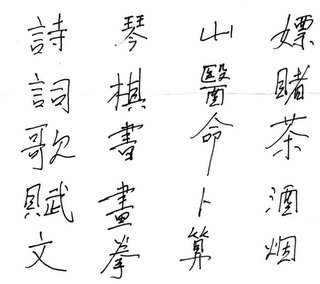 嫖賭茶酒烟
山醫命卜算
琴棋書畫拳
詩詞歌賦文